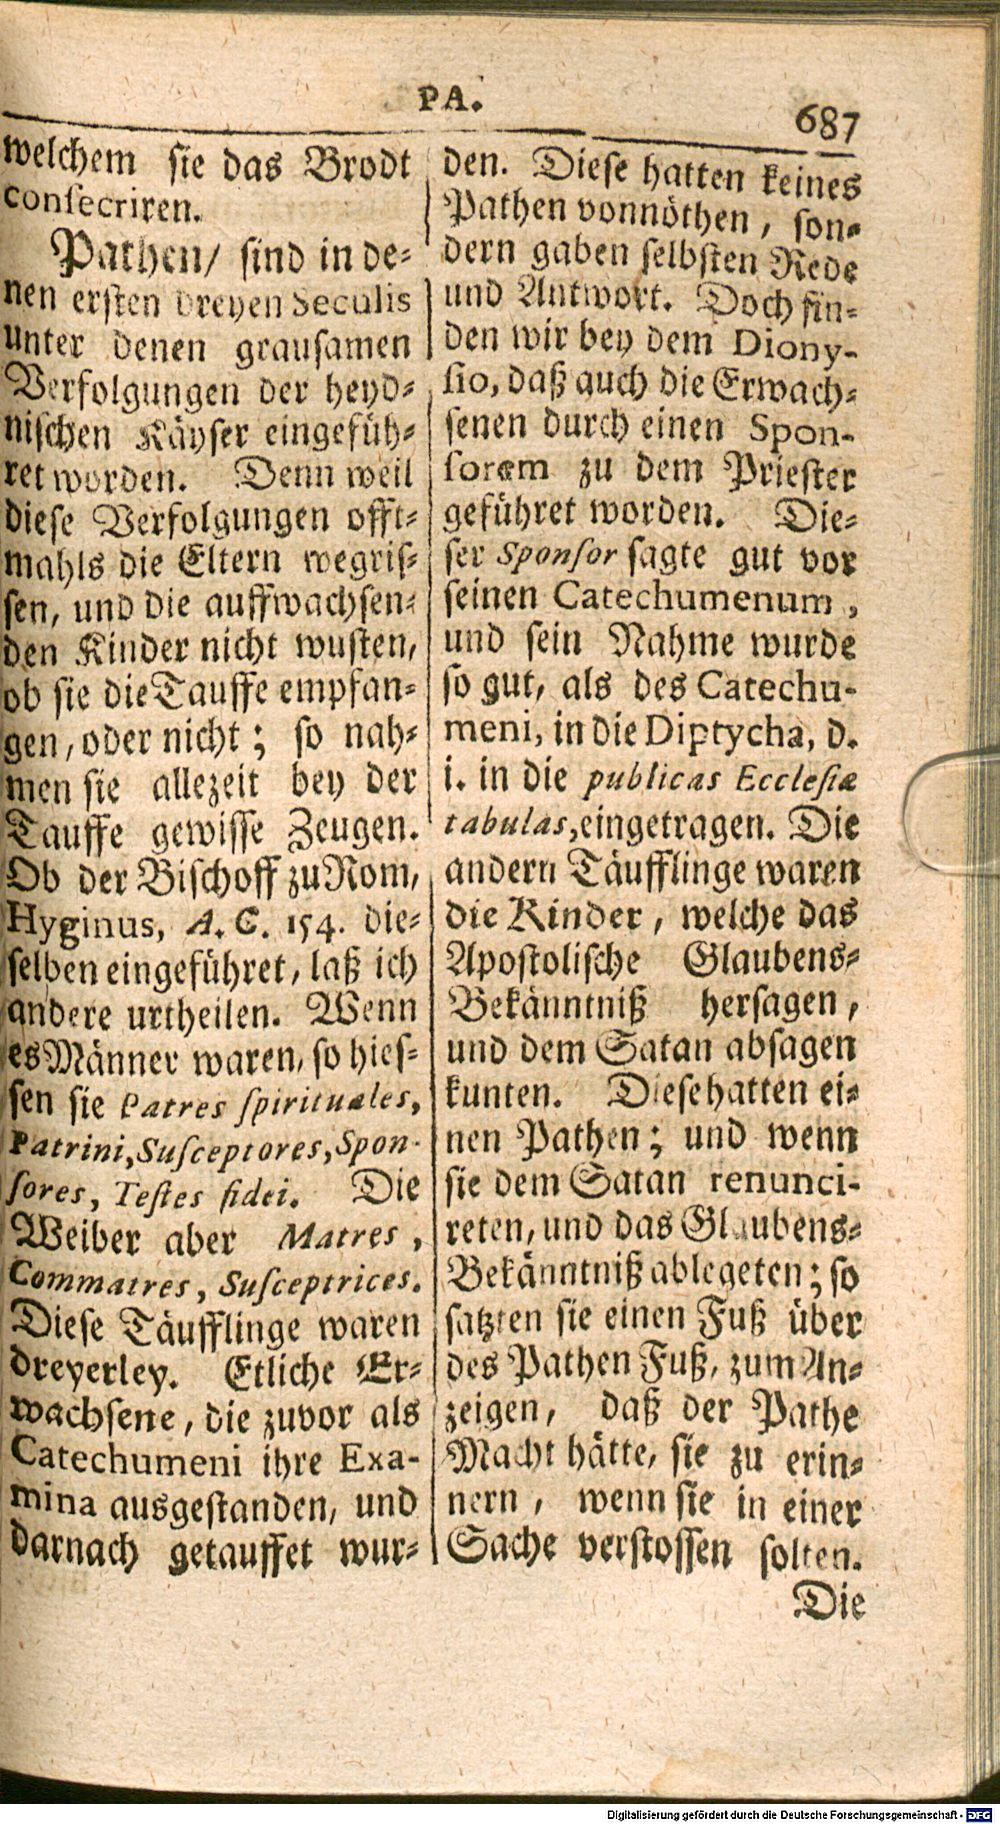 PA.
687
welchem sie das Brodt
consecriren.
Pathen/ sind in de-
nen ersten dreyen Seculis
unter denen grausamen
Verfolgungen der heyd-
nischen Käyser eingefüh-
ret worden. Denn weil
diese Verfolgungen offt-
mahls die Eltern wegris-
sen, und die auffwachsen-
den Kinder nicht wusten,
ob sie die Tauffe empfan-
gen, oder nicht; so nah-
men sie allezeit bey der
Tauffe gewisse Zeugen.
Ob der Bischoff zu Rom,
Hyginus, A. C. 154. die-
selben eingeführet, laß ich
andere urtheilen. Wenn
es Männer waren, so hies-
sen sie Patres spirituales,
Patrini, Susceptores, Spon-
sores, Testes fidei. Die
Weiber aber Matres,
Commatres, Susceptrices.
Diese Täufflinge waren
dreyerley. Etliche Er-
wachsene, die zuvor als
Catechumeni ihre Exa-
mina ausgestanden, und
darnach getauffet wur-
den. Diese hatten keines
Pathen vonnöthen, son-
dern gaben selbsten Rede
und Antwort. Doch fin-
den wir bey dem Diony-
sio, daß auch die Erwach-
senen durch einen Spon-
sorem zu dem Priester
geführet worden. Die-
ser Sponsor sagte gut vor
seinen Catechumenum,
und sein Nahme wurde
so gut, als des Catechu-
meni, in die Diptycha, d.
i. in die publicas Ecclesiæ
tabulas, eingetragen. Die
andern Täufflinge waren
die Kinder, welche das
Apostolische Glaubens-
Bekänntniß hersagen,
und dem Satan absagen
kunten. Diese hatten ei-
nen Pathen; und wenn
sie dem Satan renunci-
reten, und das Glaubens-
Bekänntniß ablegeten; so
satzten sie einen Fuß über
des Pathen Fuß, zum An-
zeigen, daß der Pathe
Macht hätte, sie zu erin-
nern, wenn sie in einer
Sache verstossen solten.
Die
Digitalisierung gefördert durch die Deutsche Forschungsgemeinschaft - DFG